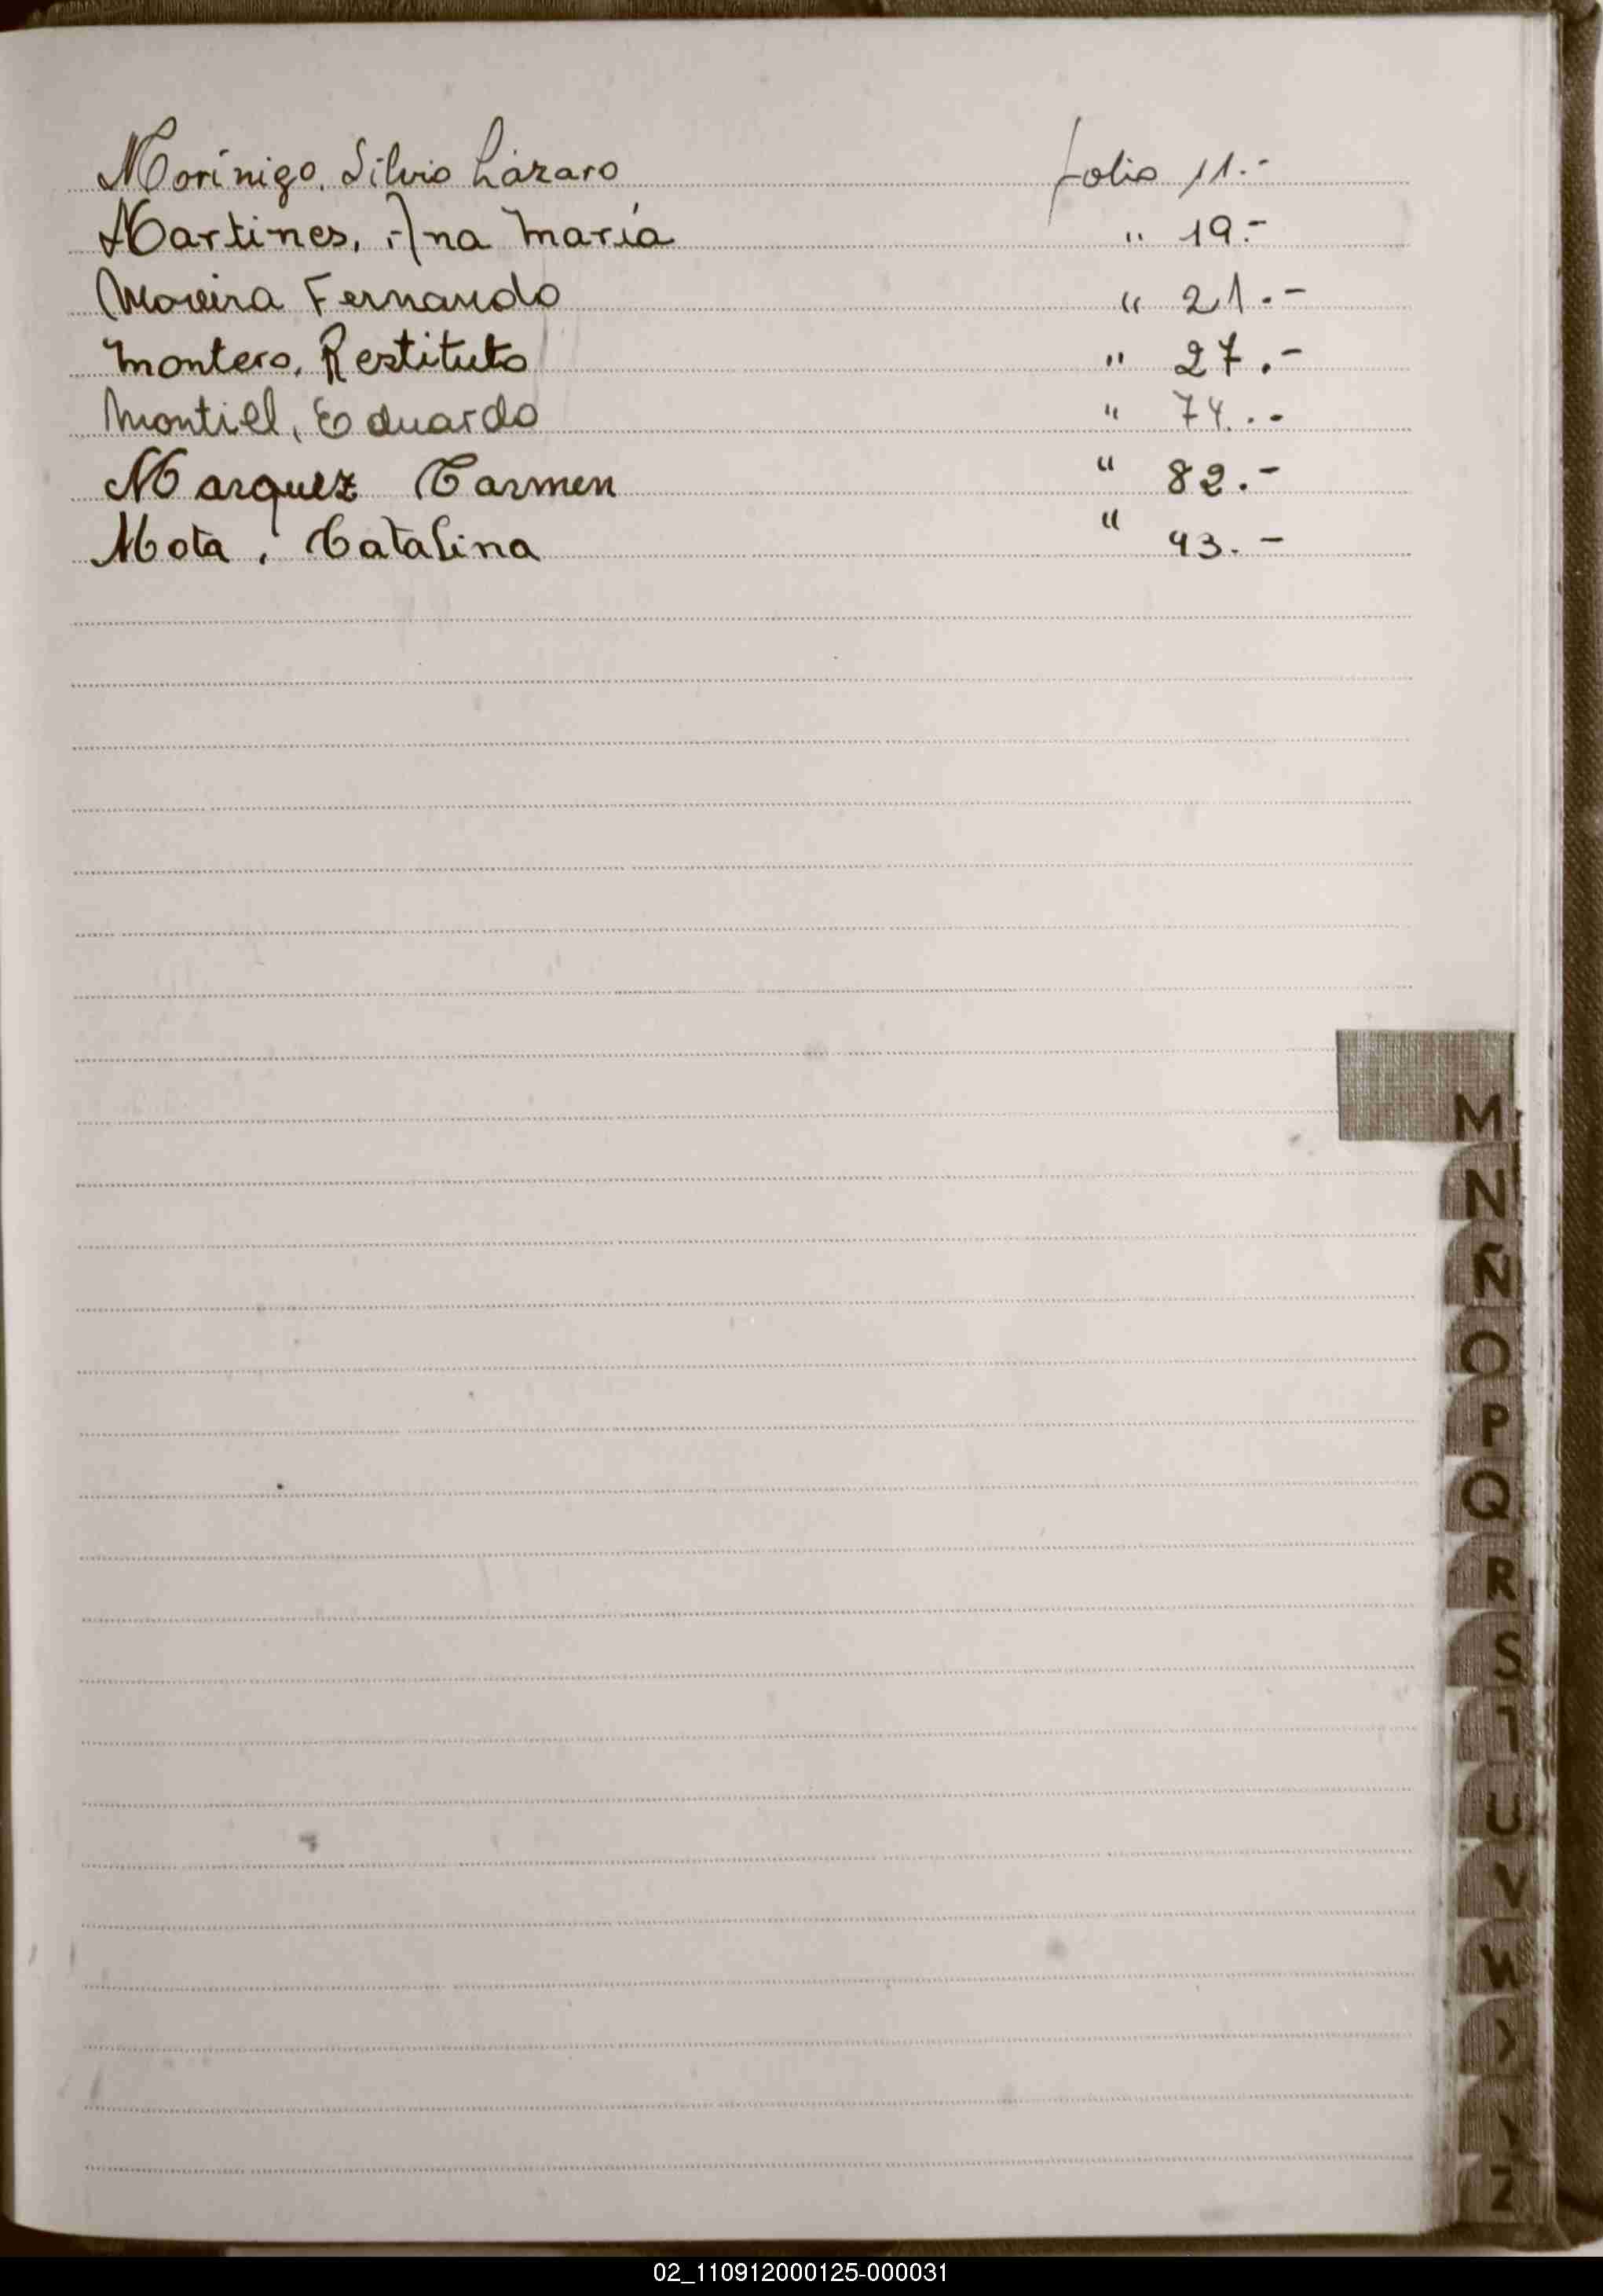 Morínigo, Silvio Lázaro folio 11.-
Martines, Ana María " 19.-
Moreira Fernando " 21.-
Montero, Restituto " 27.-
Montiel, Eduardo " 74.-
Marquez Carmen " 82.-
Mota, Catalina " 93.-
M
N
Ñ
O
P
Q
R
S
T
U
V
W
Y
Z
02_110912000125-000031